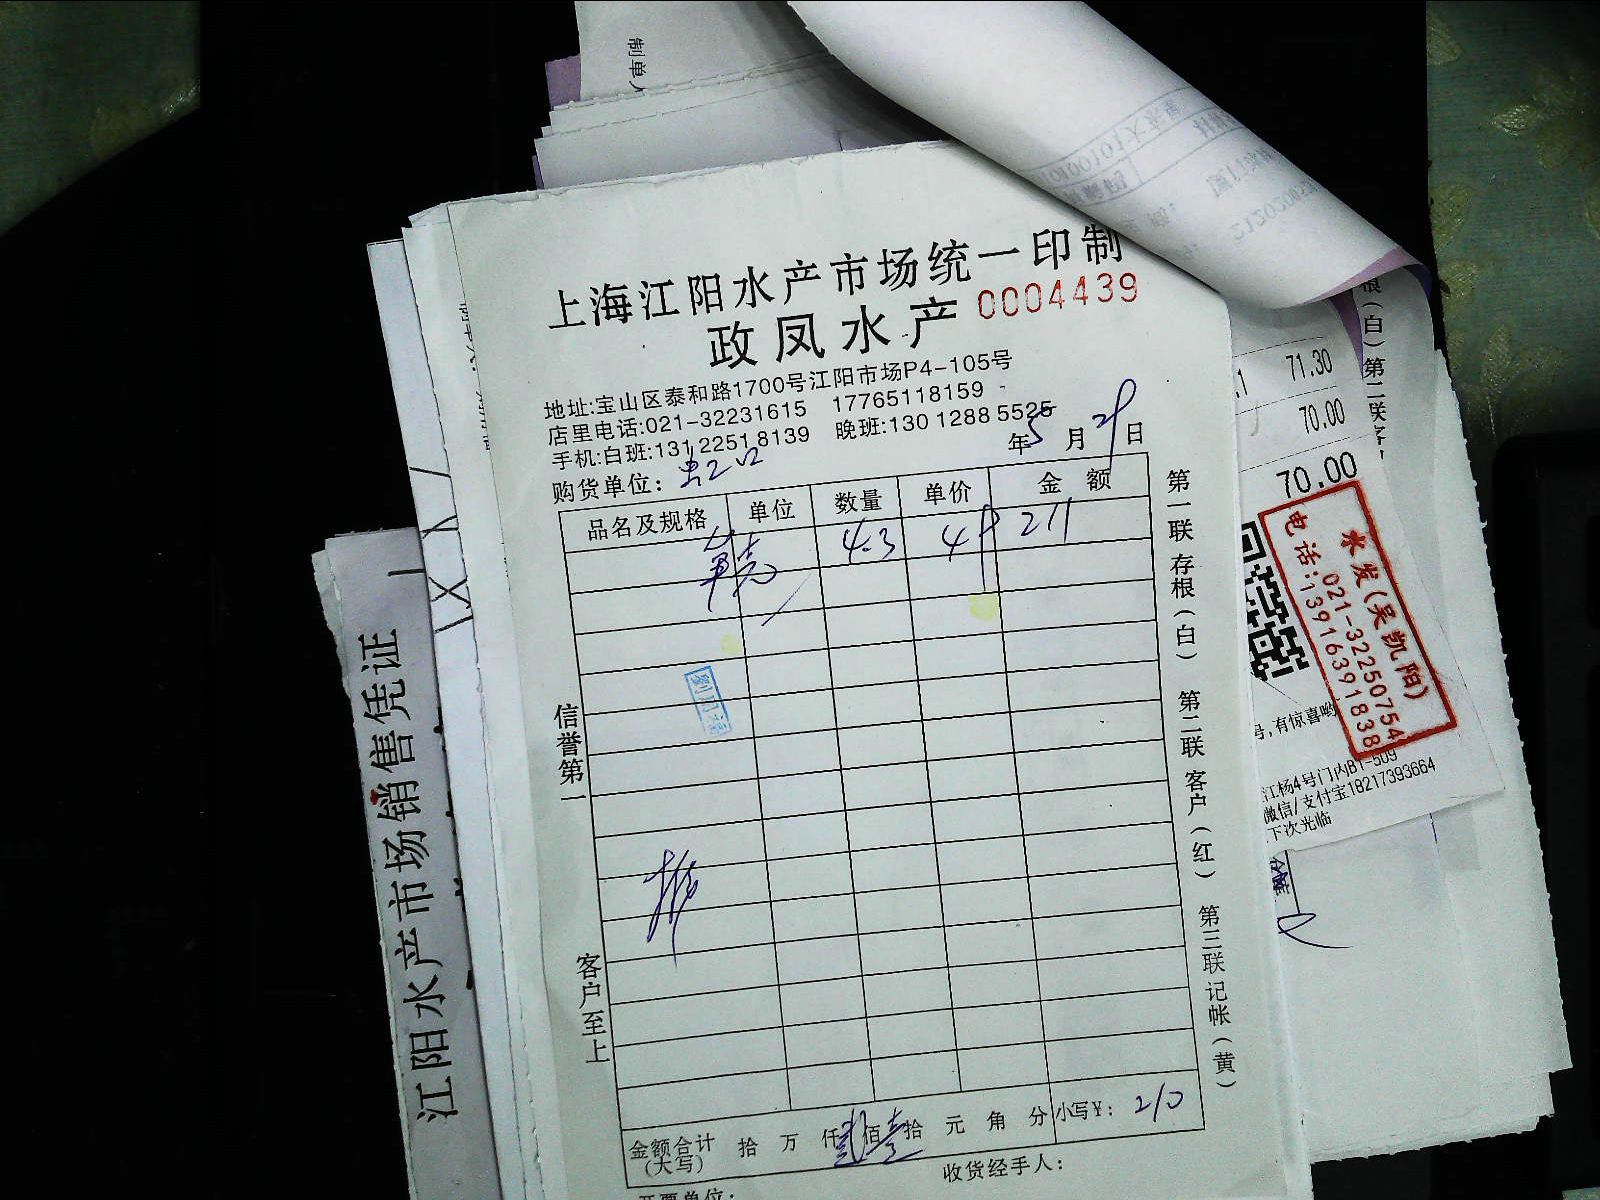 制单人
上海江阳水产市场统一印制
政凤水产 0004439
地址:宝山区泰和路1700号江阳市场P4-105号
店里电话:021-32231615 17765118159
手机:白班:131 2251 8139 晚班:130 1288 5525
年5月29日
购货单位: 虹口
品名及规格 单位 数量 单价 金额
4.3 49 211
信誉第一
客户至上
第一联 存根(白) 第二联 客户(红) 第三联 记帐(黄)
金额合计(大写) 拾 万 仟 贰佰 壹拾 元 角 分 小写¥: 210
收货经手人:
开票单位:
江阳水产市场销售凭证
根(白)第二联客户
71.30
70.00
70.00
水发(吴凯阳)
021-32250754
电话:13916391838
号,有惊喜哟
江杨4号门内B1-509
微信/支付宝18217393664
下次光临